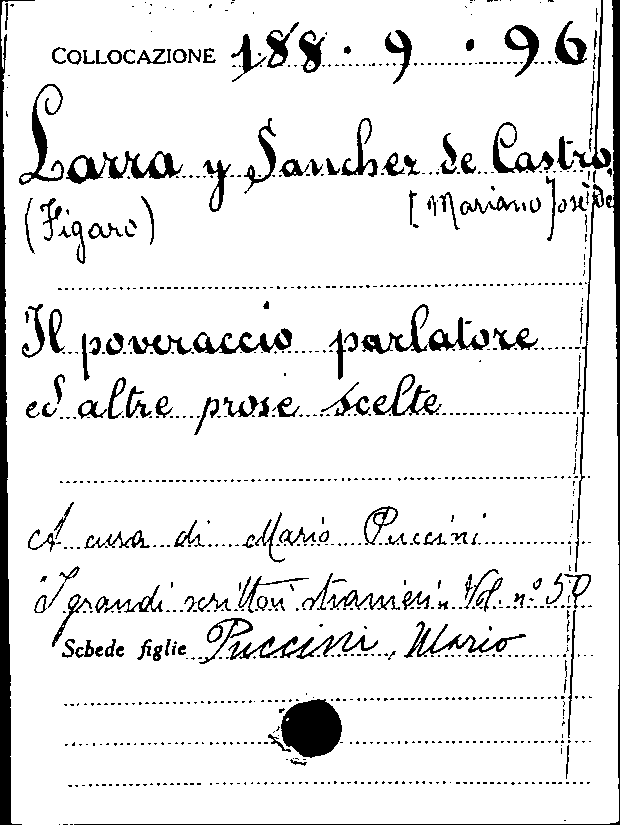 COLLOCAZIONE 188 · 9 · 96
Larra y Sancher de Castro,
(Figaro) [Mariano José De
Il poveraccio parlatore
ed altre prose scelte
A cura di Mario Puccini
"I grandi scrittori stranieri" Vol. n° 50
Schede figlie Puccini, Mario